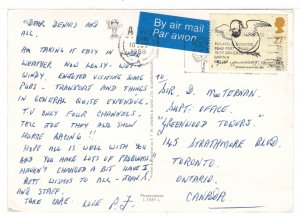 "DEAR DENNIS AND ALL
AM TAKING IT EASY IN
WEATHER NOW LOUSY - WET
WINDY, ENJOYED VISITING SOME
PUBS. TRANSPORT AND THINGS
IN GENERAL QUITE EXPENSIVE.
TV ONLY FOUR CHANNELS.
TELL JOE THEY ALL SHOW
HORSE RACING!!
HOPE ALL IS WELL WITH YOU
AND YOU HAVE LOT OF PROBLEMS
HAVEN'T CHANGED A BIT HAVE I
BEST WISHES TO ALL - JOHN
AND STAFF
TAKE CARE. LOVE P.J.
By air mail
Par avion
TO
SIR. D. MCTERNAN.
SUPT. OFFICE.
"GREENWOOD TOWERS".
145 STRATHMORE BLVD.
TORONTO.
ONTARIO.
CANADA